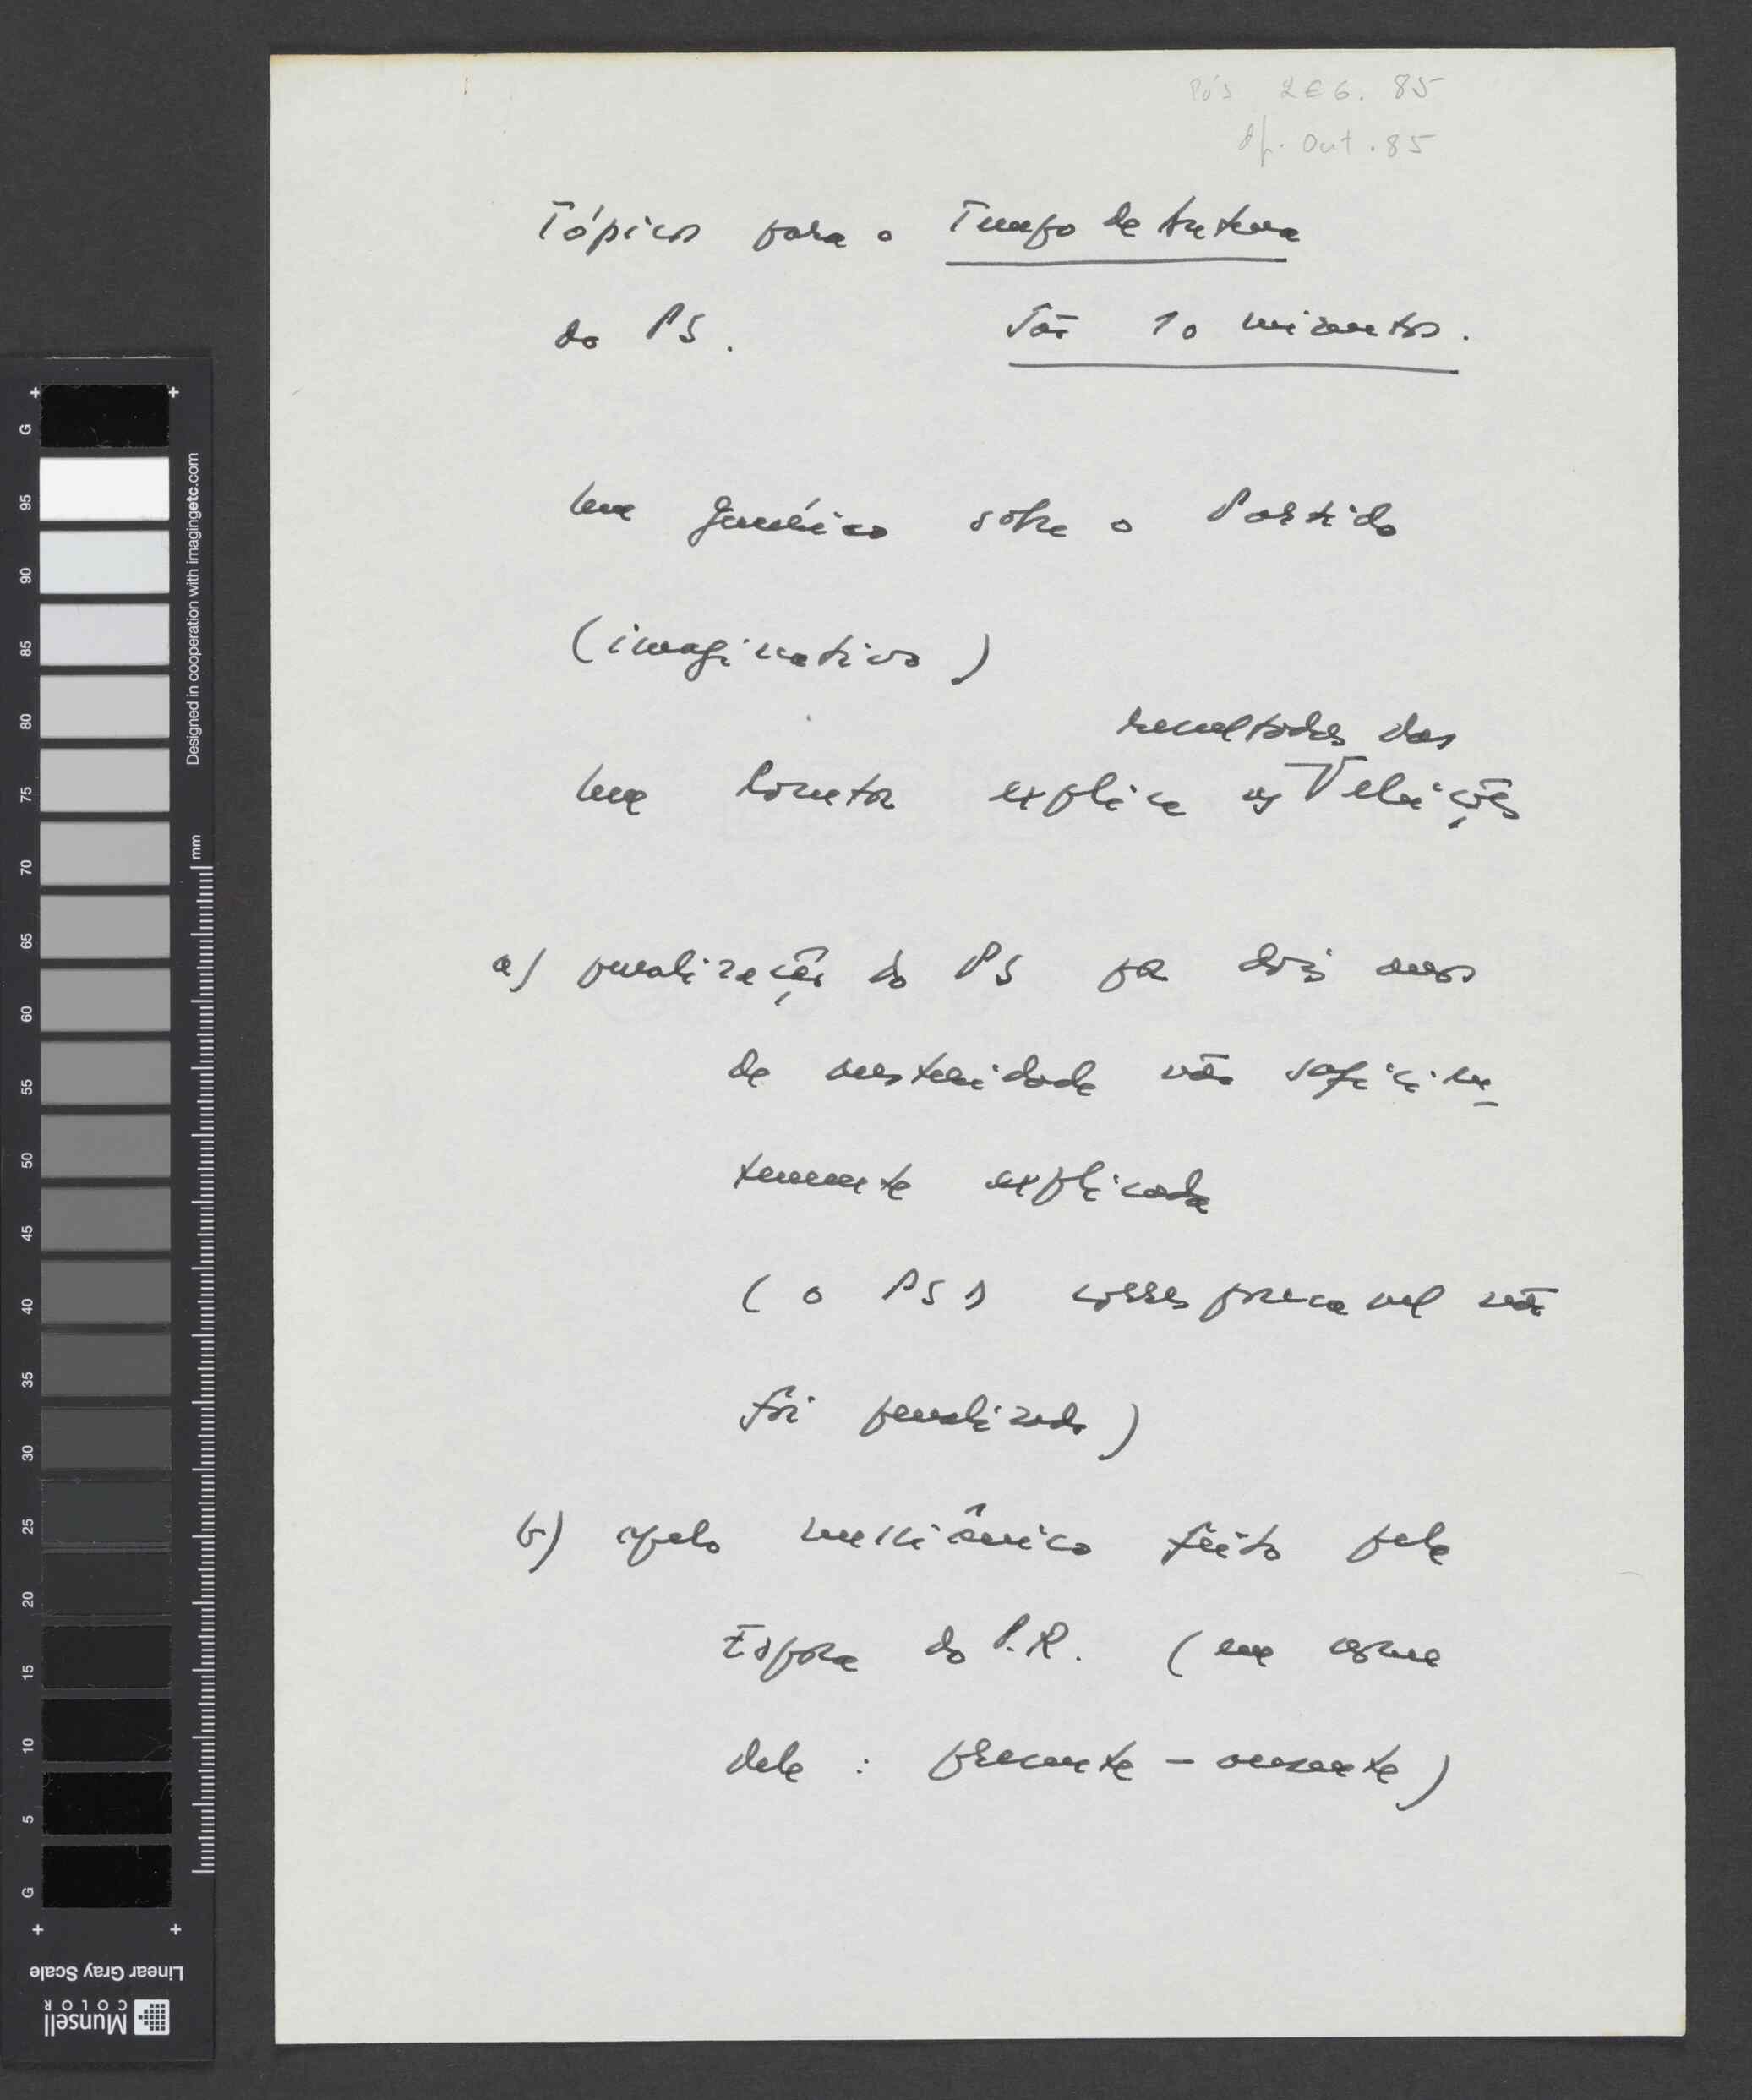 Pós LEG. 85
df. Out. 85
Tópicos para o Tempo de Antena
do PS. São 10 minutos.
Um genérico sobre o Partido
(imaginativo)
resultados das
Um locutor explica os eleições
a) penalização do PS por dois anos
de austeridade não suficien-
temente explicada
(o PSD corresponsavel não
foi penalizado)
b) apelo messiânico feito pela
Esposa do P.R. (em nome
dele : presente - ausente)
G
95
90
85
80
75
70
65
60
55
50
45
40
35
30
25
20
15
10
5
G
mm
Designed in cooperation with imagingetc.com
Linear Gray Scale
Munsell
COLOR